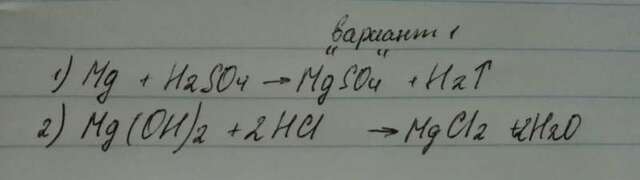 "вариант 1"
1) Mg + H2SO4 → MgSO4 + H2↑
2) Mg(OH)2 + 2HCl → MgCl2 + 2H2O